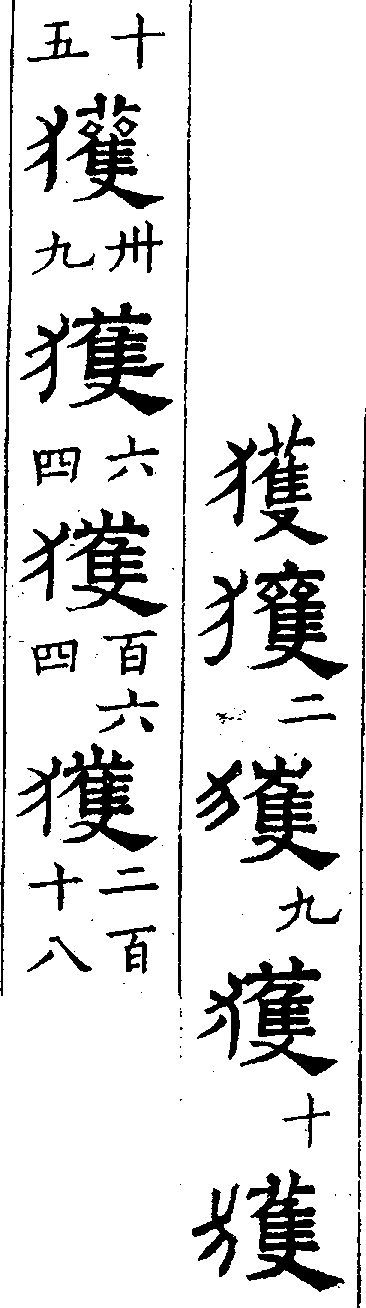 獲獲二獲九獲十獲
十五獲卅九獲六四獲百六四獲二百十八